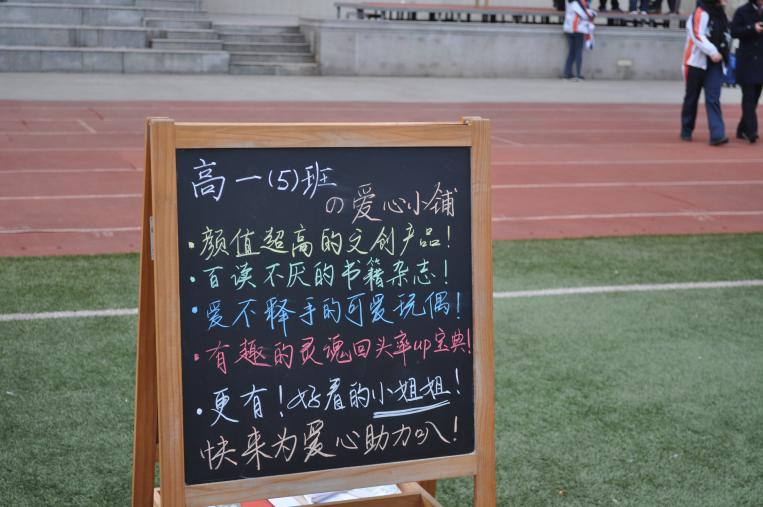 高一(5)班
の爱心小铺
·颜值超高的文创产品!
·百读不厌的书籍杂志!
·爱不释手的可爱玩偶!
·有趣的灵魂回头率up宝典!
·更有!好看的小姐姐!
快来为爱心助力叭!